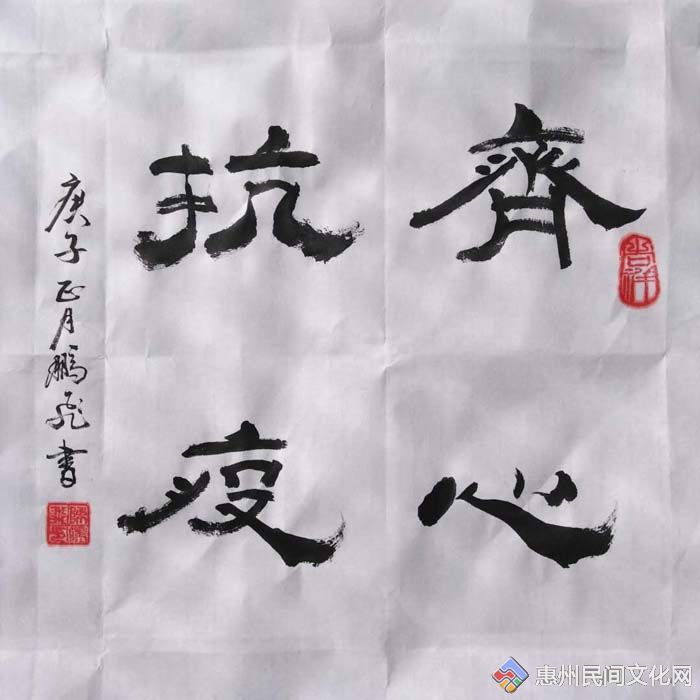 齊心
抗疫
庚子正月鵬飛書
吉祥
惠州民间文化网